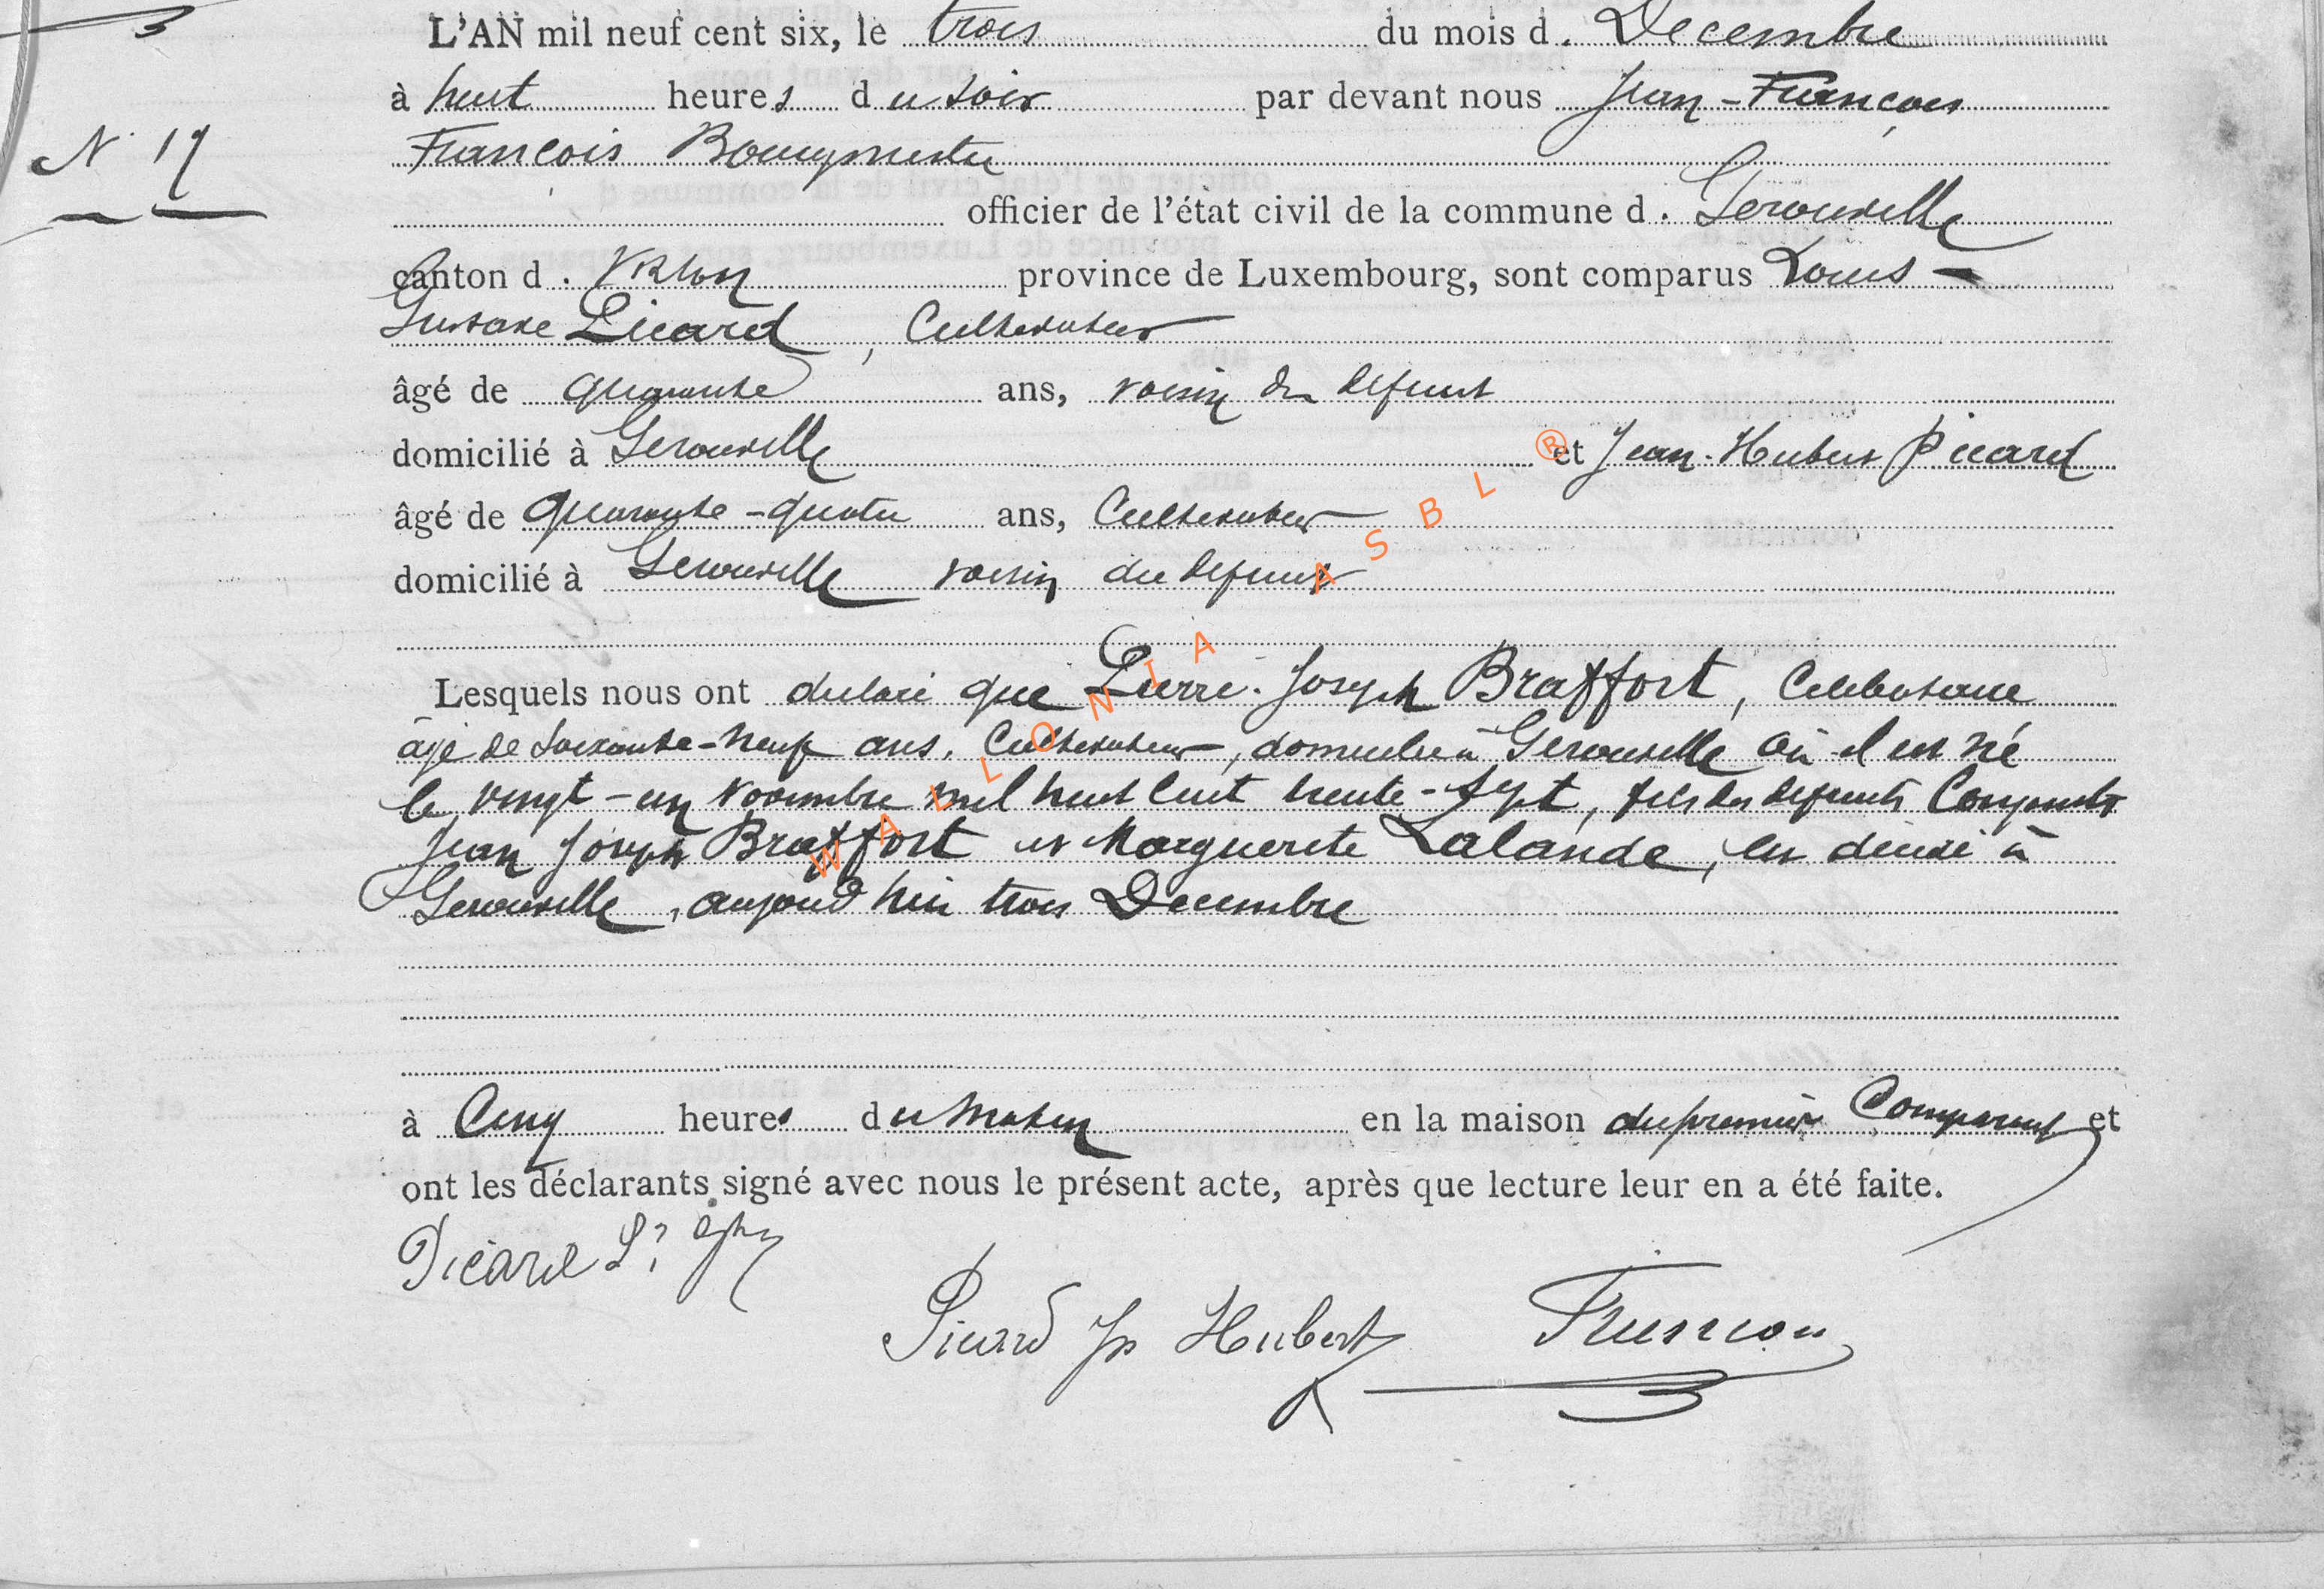 L'AN mil neuf cent six, le trois du mois d. Decembre
à huit heures du soir par devant nous Jean-François
N. 17
François Bourgmestre
officier de l'état civil de la commune d. Gerouville
canton d. Virton province de Luxembourg, sont comparus Louis-
Gustave Picard, Cultivateur
âgé de quarante ans, voisin du defunt
domicilié à Gerouville et Jean-Hubert Picard
âgé de quarante-quatre ans, Cultivateur
domicilié à Gerouville voisin du defunt
Lesquels nous ont declaré que Pierre-Joseph Braffort, Celibataire
âgé de Soixante-neuf ans, Cultivateur, domicilié à Gerouville où il est né
le vingt-un Novembre mil huit cent trente-sept, fils des defunts Conjoints
Jean Joseph Braffort et Marguerite Lalande, est décédé à
Gerouville, aujourd'hui trois Decembre
à Cinq heures du matin en la maison du premier Comparant et
ont les déclarants signé avec nous le présent acte, après que lecture leur en a été faite.
Picard L?
Picard Jn Hubert François
WALLONIA ASBL ®